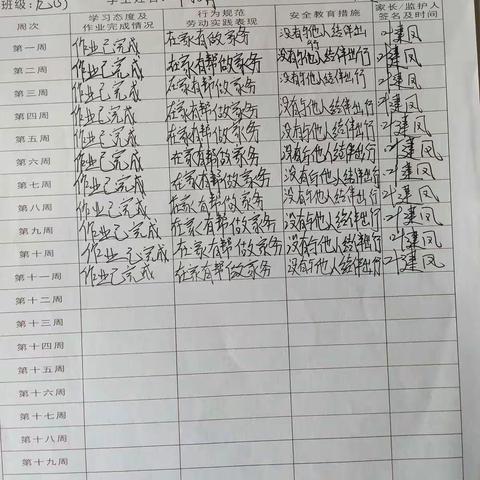 班级:
周次 学习态度及作业完成情况 行为规范劳动实践表现 安全教育措施 家长/监护人签名及时间
第一周 作业已完成 在家有做家务 没有与他人结伴出行 叶建凤
第二周 作业已完成 在家有帮做家务 没有与他人结伴出行 叶建凤
第三周 作业已完成 在家有帮做家务 没有与他人结伴出行 叶建凤
第四周 作业已完成 在家有帮做家务 没有与他人结伴出行 叶建凤
第五周 作业已完成 在家有帮做家务 没有与他人结伴出行 叶建凤
第六周 作业已完成 在家有帮做家务 没有与他人结伴出行 叶建凤
第七周 作业已完成 在家有帮做家务 没有与他人结伴出行 叶建凤
第八周 作业已完成 在家有帮做家务 没有与他人结伴出行 叶建凤
第九周 作业已完成 在家有帮做家务 没有与他人结伴出行 叶建凤
第十周 作业已完成 在家有帮做家务 没有与他人结伴出行 叶建凤
第十一周 作业已完成 在家有帮做家务 没有与他人结伴出行 叶建凤
第十二周
第十三周
第十四周
第十五周
第十六周
第十七周
第十八周
第十九周